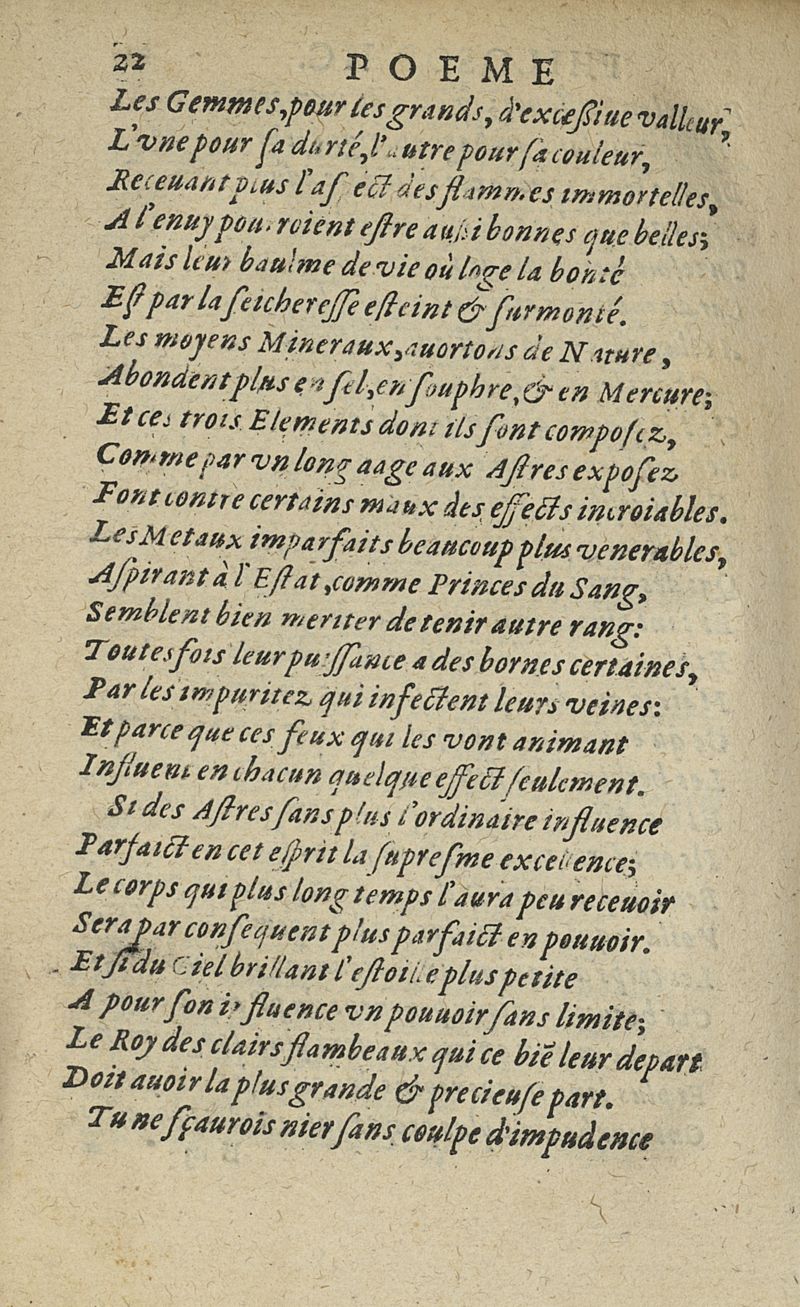 22 POEME
Les Gemmes, pour les grands, d'excæſſiue valleur,
L'vne pour ſa durté, l'autre pour ſa couleur,
Receuant plus l'aſpect des flammes immortelles,
A l'enuy pourroient eſtre auſsi bonnes que belles;
Mais leur baulme de vie où loge la bonté
Eſt par la ſeichereſſe eſteint & ſurmonté.
Les moyens Mineraux, auortons de Nature,
Abondent plus en ſel, en ſouphre, & en Mercure;
Et ces trois Elements dont ils ſont compoſez,
Comme par vn long aage aux Aſtres expoſez
Font contre certains maux des effects incroiables.
Les Metaux imparfaits beaucoup plus venerables,
Aſpirant à l'Eſtat, comme Princes du Sang,
Semblent bien meriter de tenir autre rang:
Toutesfois leur puiſſance a des bornes certaines,
Par les impuritez qui infectent leurs veines:
Et parce que ces feux qui les vont animant
Influent en chacun quelque effect ſeulement.
Si des Aſtres ſans plus l'ordinaire influence
Parfaict en cet eſprit la ſupreſme excellence;
Le corps qui plus long temps l'aura peu receuoir
Sera par conſequent plus parfaict en pouuoir.
Et ſi du Ciel brillant l'eſtoille plus petite
A pour ſon influence vn pouuoir ſans limite;
Le Roy des clairs flambeaux qui ce biē leur depart
Doit auoir la plus grande & precieuſe part.
Tu ne ſçaurois nier ſans coulpe d'impudence